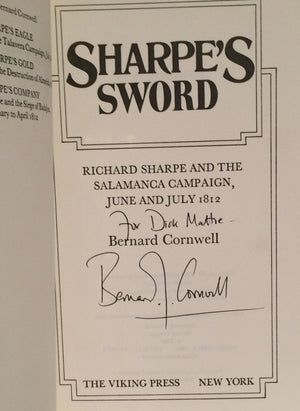 Bernard Cornwell
PE'S EAGLE
Talavera Campaign, July
PE'S GOLD
Destruction of Almeida,
PE'S COMPANY
and the Siege of Badajoz,
uary to April 1812
SHARPE'S
SWORD
RICHARD SHARPE AND THE
SALAMANCA CAMPAIGN,
JUNE AND JULY 1812
For Dick
Bernard Cornwell
Bernard Cornwell
THE VIKING PRESS NEW YORK